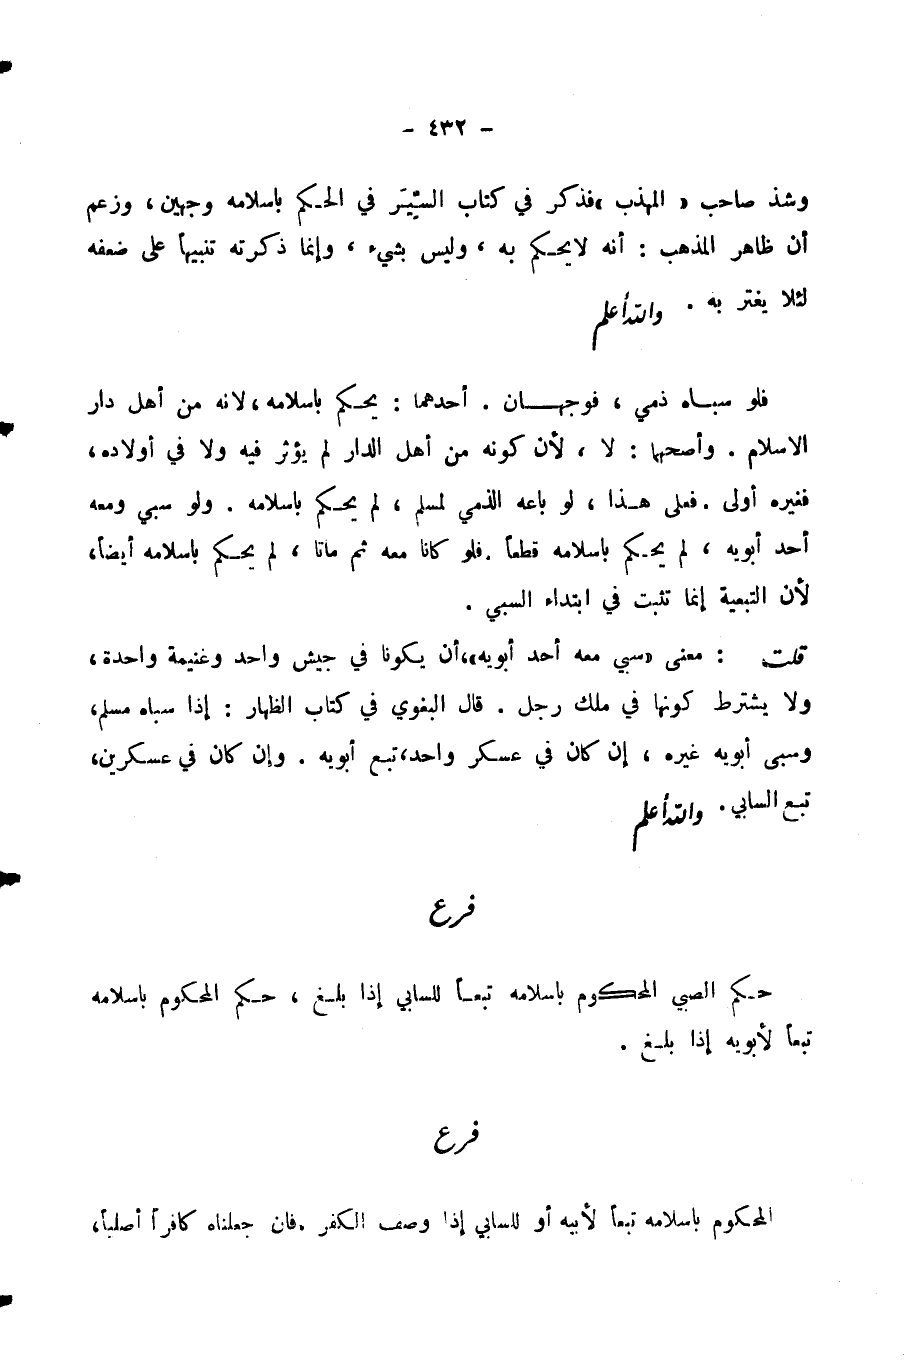 - ٤٣٢ -
وشذ صاحب « المهذب »فذكر في كتاب السِّيَر في الحكم باسلامه وجهين ، وزعم
أن ظاهر المذهب : أنه لايحكم به ، وليس بشيء ، وإنما ذكرته تنبيهاً على ضعفه
لئلا يغتر به . والله أعلم
فلو سباه ذمي ، فوجهان . أحدهما : يحكم باسلامه ، لانه من أهل دار
الاسلام . وأصحها : لا ، لأن كونه من أهل الدار لم يؤثر فيه ولا في أولاده ،
فغيره أولى . فعلى هذا ، لو باعه الذمي لمسلم ، لم يحكم باسلامه . ولو سبي ومعه
أحد أبويه ، لم يحكم باسلامه قطعاً . فلو كانا معه ثم ماتا ، لم يحكم باسلامه أيضاً ،
لأن التبعية إنما تثبت في ابتداء السبي .
قلت : معنى «سبي معه أحد أبويه» ، أن يكونا في جيش واحد وغنيمة واحدة ،
ولا يشترط كونها في ملك رجل . قال البغوي في كتاب الظهار : إذا سباه مسلم ،
وسبى أبويه غيره ، إن كان في عسكر واحد ، تبع أبويه . وإن كان في عسكرين ،
تبع السابي . والله أعلم
فرع
حكم الصبي المحكوم باسلامه تبعاً للسابي إذا بلغ ، حكم المحكوم باسلامه
تبعاً لأبويه إذا بلغ .
فرع
المحكوم باسلامه تبعاً لأبيه أو للسابي إذا وصف الكفر . فان جعلناه كافراً أصلياً ،